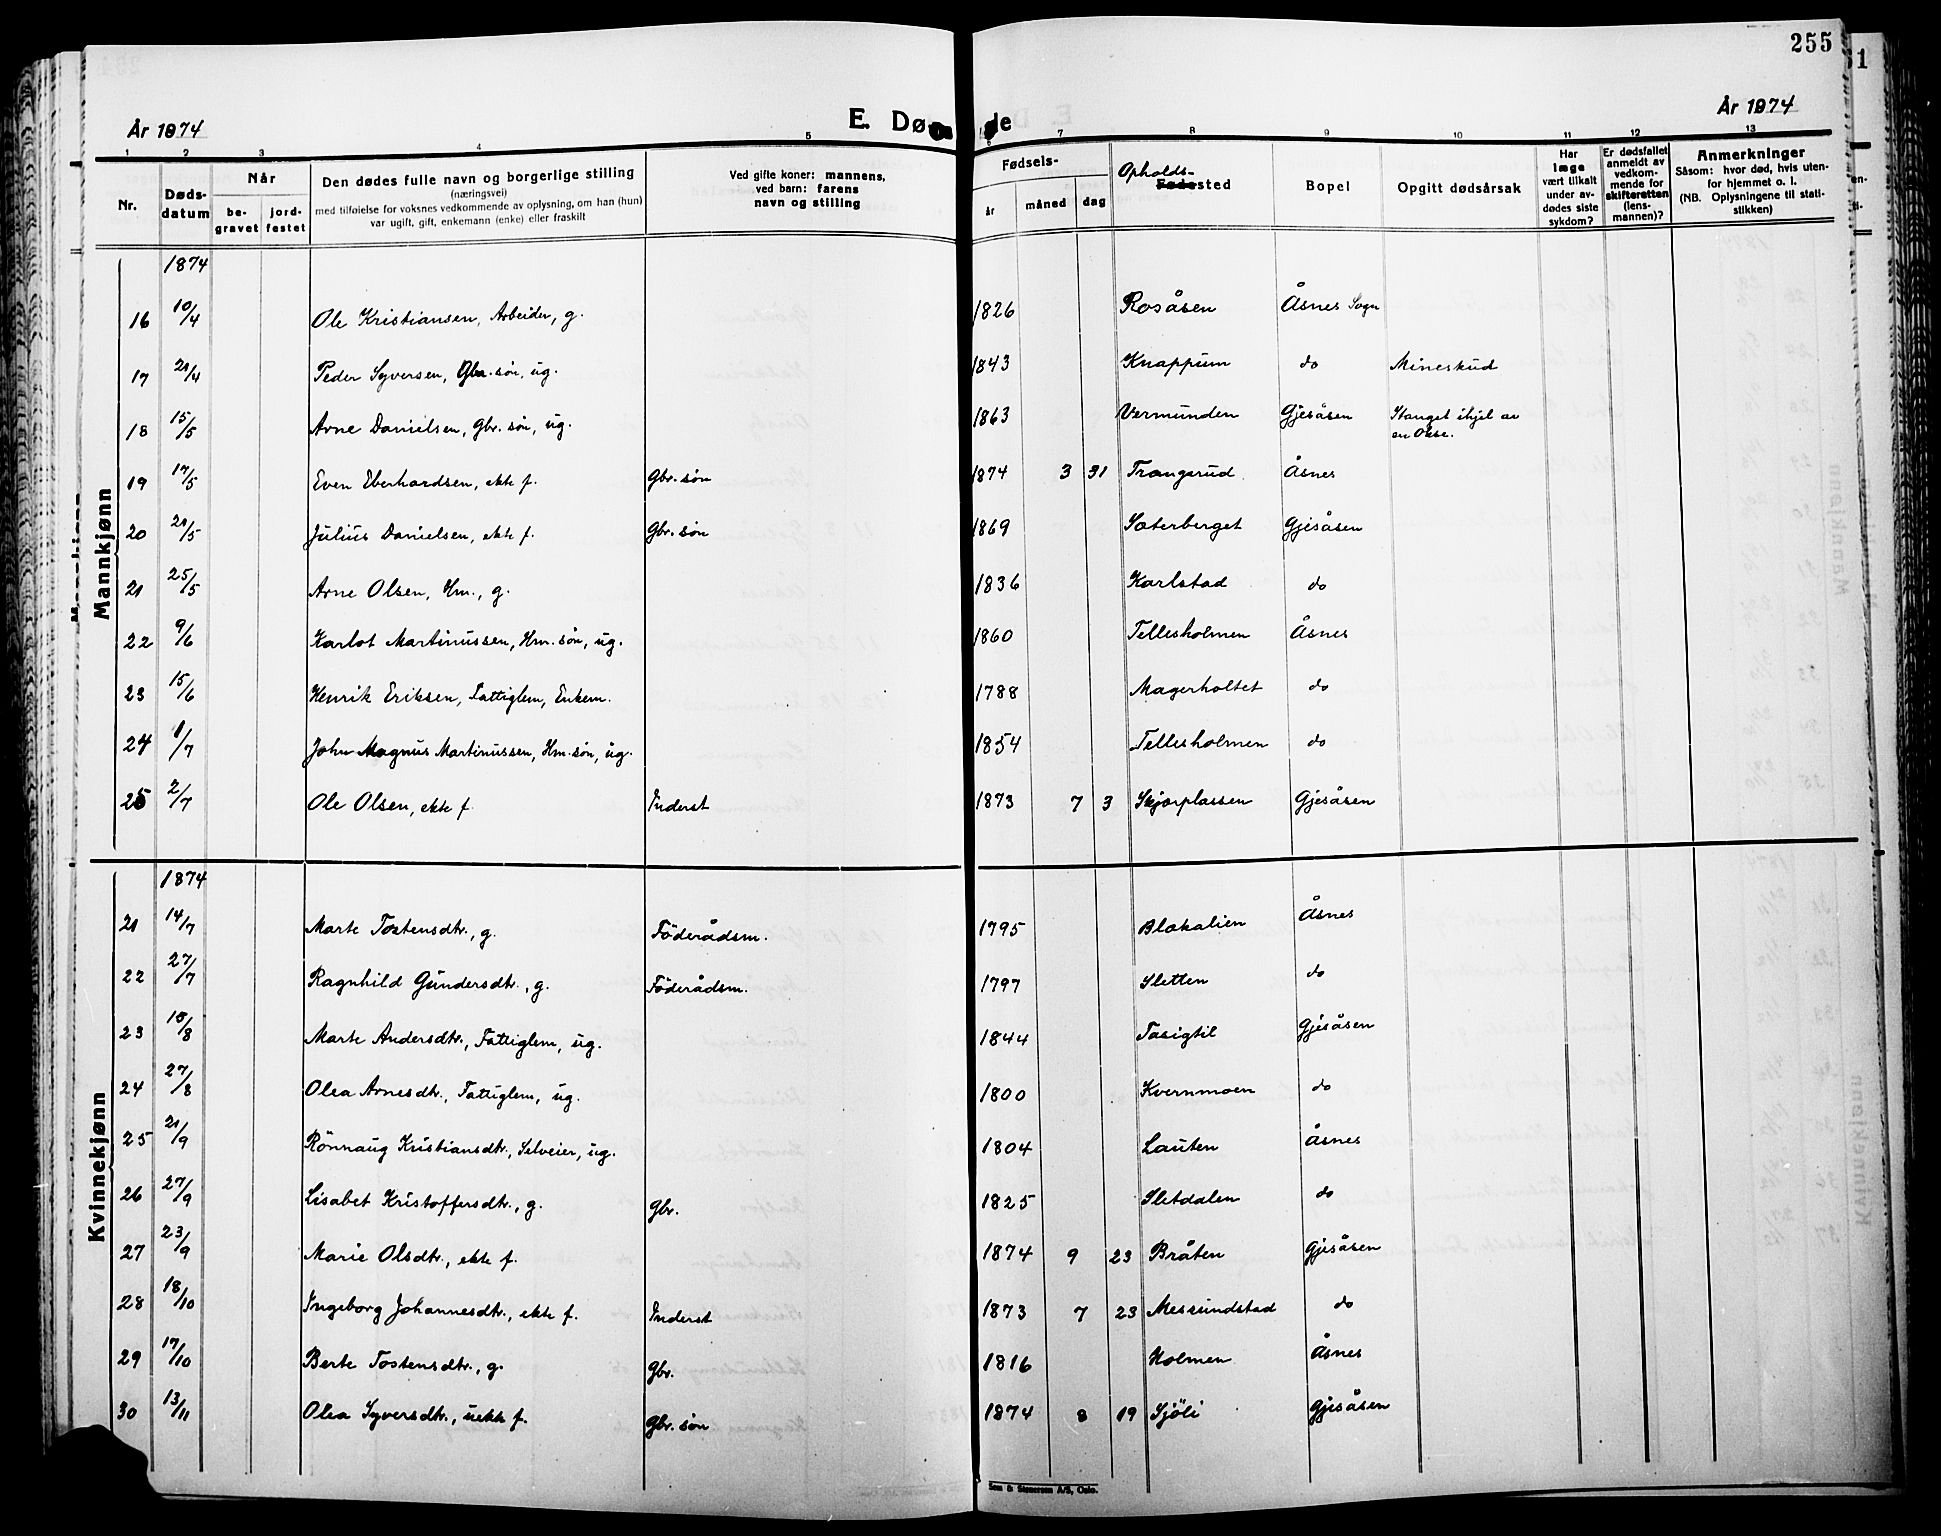 255
År 1874
E. Dø de
År 1874
1 2 3 4 5 6 7 8 9 10 11 12 13
Nr. Døds-datum Når be-gravet jord-festet Den dødes fulle navn og borgerlige stilling (næringsvei) med tilføielse for voksnes vedkommende av oplysning, om han (hun) var ugift, gift, enkemann (enke) eller fraskilt Ved gifte koner: mannens, ved barn: farens navn og stilling Fødsels- år måned dag Opholds-sted Bopel Opgitt dødsårsak Har læge vært tilkalt under av-dødes siste sykdom? Er dødsfallet anmeldt av vedkom-mende for skifteretten (lens-mannen)? Anmerkninger Såsom: hvor død, hvis uten-for hjemmet o. l. (NB. Oplysningene til stati-stikken)
Mannkjønn
1874
16 10/4 Ole Kristiansen, Arbeider, g. 1826 Rosåsen Åsnes Sogn
17 21/4 Peder Syversen, Gbr. søn, ug. 1843 Knappum do Mineskud
18 15/5 Arne Danielsen, Gbr. søn, ug. 1863 Vermunden Gjesåsen Stanget ihjel av
en Okse.
19 17/5 Even Eberhardsen, ekte f. Gbr. søn 1874 3 31 Trangsrud Åsnes
20 21/5 Julius Danielsen, ekte f. Gbr. søn 1869 Sæterberget Gjesåsen
21 25/5 Arne Olsen, Hm., g. 1836 Karlstad do
22 9/6 Karlot Martinussen, Hm. søn, ug. 1860 Tellesholmen Åsnes
23 15/6 Henrik Eriksen, Fattiglem, Enkem. 1788 Magerholtet do
24 1/7 John Magnus Martinussen, Hm. søn, ug. 1854 Tellesholmen do
25 2/7 Ole Olsen, ekte f. Inderst 1873 7 3 Skjørplassen Gjesåsen
Kvinnekjønn
1874
21 14/7 Marte Tostensdtr., g. Föderådsm. 1795 Blakalien Åsnes
22 27/7 Ragnhild Gundersdtr., g. Föderådsm. 1797 Sletten do
23 /8 Marte Andersdtr., Fattiglem, ug. 1844 Tasigtil Gjesåsen
24 27/8 Olea Arnesdtr., Fattiglem, ug. 1800 Kvernmoen do
25 21/9 Rönnaug Kristiansdtr., Selveier, ug. 1804 Lauten Åsnes
26 27/9 Lisabet Kristoffersdtr., g. Gbr. 1825 Sletdalen do
27 23/9 Marie Olsdtr., ekte f. 1874 9 23 Bråten Gjesåsen
28 18/10 Ingeborg Johannesdtr., ekte f. Inderst 1873 7 23 Messundstad do
29 17/10 Berte Tostensdtr., g. Gbr. 1816 Holmen Åsnes
30 13/11 Olea Syversdtr., uekte f. Gbr. søn 1874 8 19 Sjöli Gjesåsen
Sem & Stenersen A/S, Oslo.